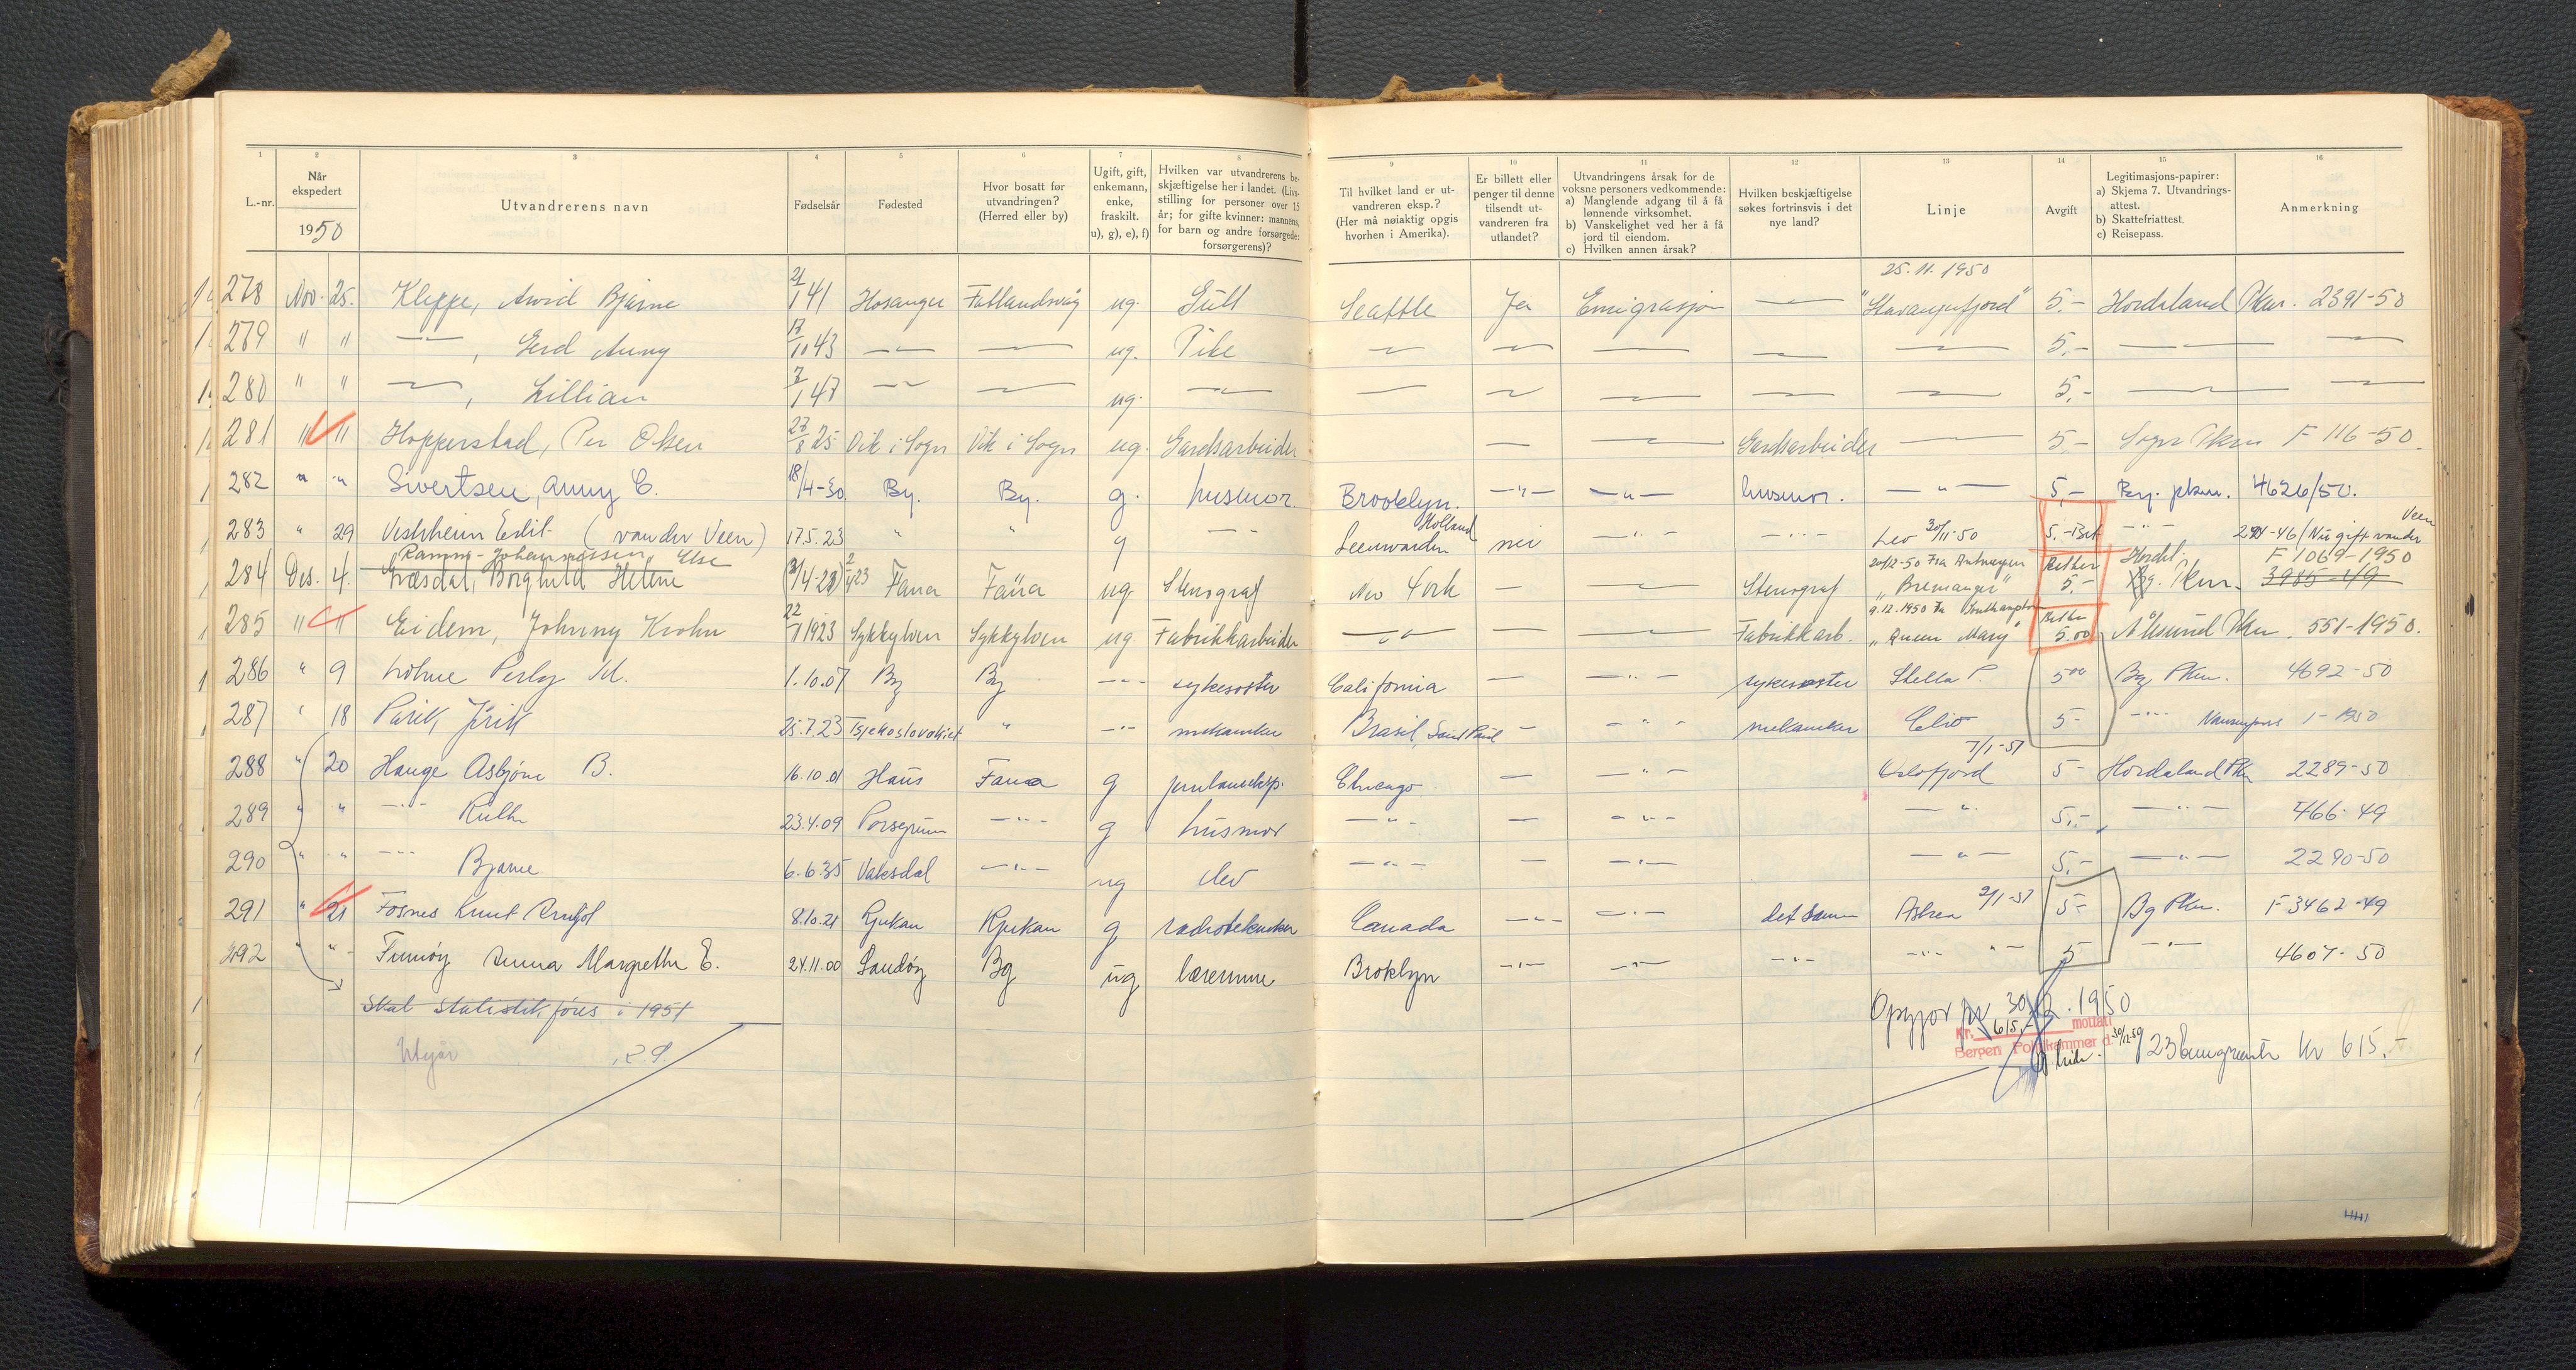 1 2 3 4 5 6 7 8 9 10 11 12 13 14 15 16
L.-nr. Når ekspedert 1950 Utvandrerens navn Fødselsår Fødested Hvor bosatt før utvandringen? (Herred eller by) Ugift, gift, enkemann, enke, fraskilt. u), g), e), f) Hvilken var utvandrerens beskjæftigelse her i landet. (Livsstilling for personer over 15 år; for gifte kvinner: mannens, for barn og andre forsørgede: forsørgerens)? Til hvilket land er utvandreren eksp.? (Her må nøiaktig opgis hvorhen i Amerika). Er billett eller penger til denne tilsendt utvandreren fra utlandet? Utvandringens årsak for de voksne personers vedkommende: a) Manglende adgang til å få lønnende virksomhet. b) Vanskelighet ved her å få jord til eiendom. c) Hvilken annen årsak? Hvilken beskjæftigelse søkes fortrinsvis i det nye land? Linje Avgift Legitimasjons-papirer: a) Skjema 7. Utvandringsattest. b) Skattefriattest. c) Reisepass. Anmerkning
25.11.1950
278 Nov. 25. Kleppe, Arvid Bjarne 21/1 41 Hosanger Fatlandsvåg ug. Gutt Seattle Ja Emigrasjon — "Stavangerfjord" 5.- Hordaland Pkm. 2391-50
279 " " —"—, Gerd Anny 17/10 43 —"— — ug. Pike — — — — — 5.- — —
280 " " —"—, Lillian 7/1 47 —"— — ug. — — — — — — 5.- — —
281 " " Hopperstad, Per Olsen 27/8 25 Vik i Sogn Vik i Sogn ug. Gardsarbeider — — Gardsarbeider — 5.- Sogn Pkm F 116-50
282 " " Sivertsen, Anny C. 18/4-30 By. By. g. husmor Brooklyn. —"— —"— husmor. —"— 5,- Bg. pkm. 4626/50.
283 " 29 Vestrheim Edit (van der Veen) 17.5.23 " " g — Leeuwarden Holland nei —"— —"— Leo 30/11-50 5.-Bet —"— 291-46/Nå gift van der Veen
Ramm-Johannessen, Else 20/12-50 Fra Antwerpen Hordal. F 1069-1950
284 Des. 4. Græsdal, Borghild Helene (3/4-23) 2/4 23 Fana Fana ug. Stenograf New York — — Stenograf "Bremanger" 5.- Bg. Pkm. 3985-49
9.12.1950 fra Southampton
285 " " Eidem, Johnny Krohn 22/7 1923 Sykkylven Sykkylven ug Fabrikkarbeider —"— — — Fabrikkarb. "Queen Mary" 5.00 Ålesund Pkm. 551-1950.
286 " 9 Løhne Perly M. 1.10.07 Bg Bg —"— sykesøster California — — sykesøster Stella P. 5⁰⁰ Bg Pkm. 4692-50
287 " 18 Parik Jirik 25.7.23 Tsjekoslovakiet " —"— mekaniker Brasil, — —"— mekaniker Clio 5- —"— Nansenpass 1-1950
7/1-51
288 " 20 Hauge Asbjørn B. 16.10.01 Haus Fana g Chicago — —"— Oslofjord 5- Hordaland Pkm 2289-50
289 " " —"— Ruth 23.4.09 Porsgrunn —"— g husmor —"— — —"— —"— 5.- —"— 466-49
290 " " —"— Bjarne 6.6.35 Vaksdal —"— ug elev —"— — —"— —"— 5.- —"— 2290-50
291 " 21 Fosnes Knut 8.10.21 Rjukan Rjukan g radiotekniker Canada —"— —"— det samme Astrea 2/1-51 5- Bg Pkm. F 3462-49
292 " " Finnøy Anna Margrethe E. 24.11.00 Sandøy Bg ug lærerinne Broklyn —"— —"— —"— —"— "— 5 —"— 4607-50
Skal statistik føres i 1951
Opgjør pr 30/12.1950
Utgår 29.
Kr. 615,- mottatt
Bergen Politikammer d. 30/12-50
emigranter kr 615,-